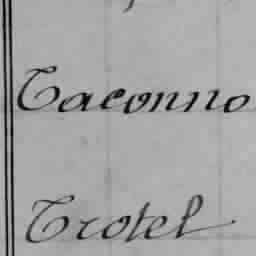 Taconno
Trotel